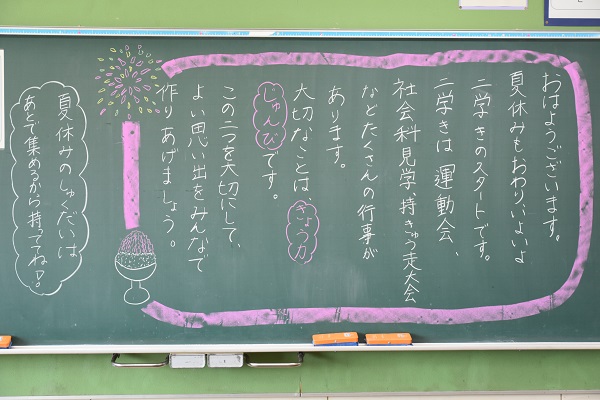 おはようございます。
夏休みもおわり、いよいよ
二学きのスタートです。
二学きは、運動会、
社会科見学、持きゅう走大会
などたくさんの行事が
あります。
大切なことは、きょう力
じゅんびです。
この二つを大切にして、
よい思い出をみんなで
作りあげましょう。
夏休みのしゅくだいは
あとで集めるから持っててね